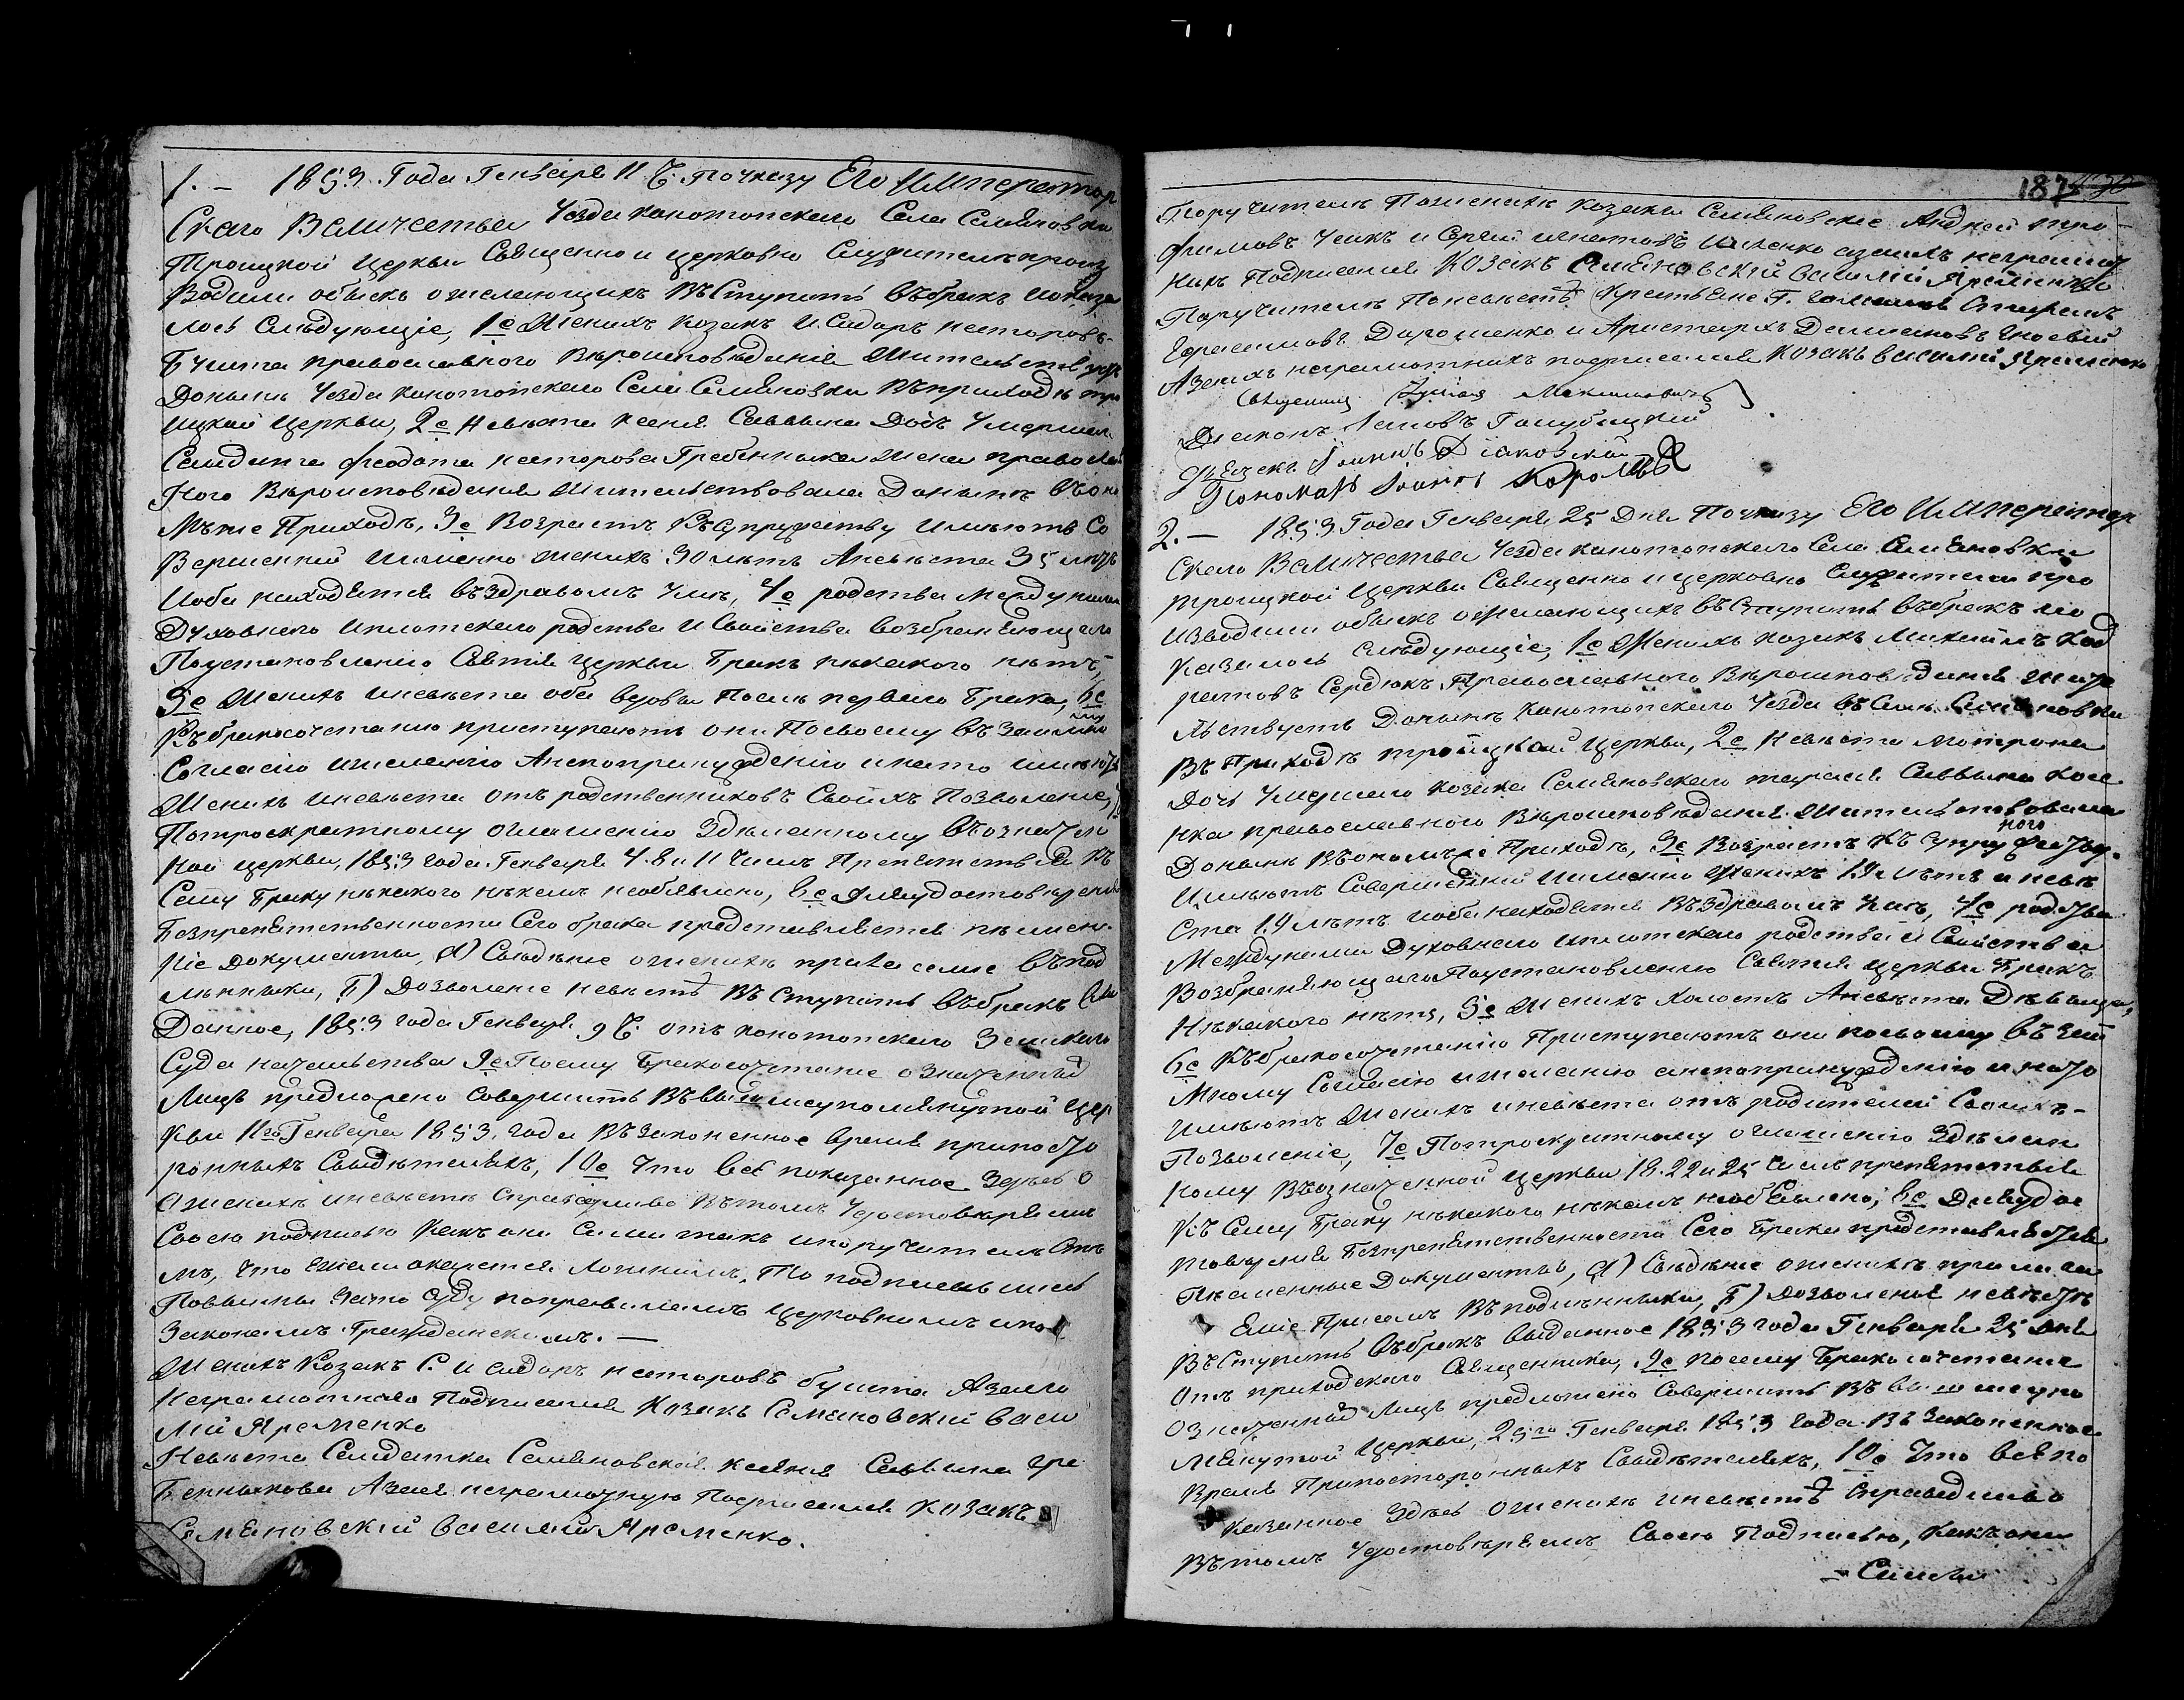 1. – 1853. Года Генваря 11 Ч. Поуказу Его Император
Скаго Величества Уезда конотопскаго Села Семяновки
Троицкой Церкви Священно и церковно Служители произ
Водили обыскъ ожелающихъ въСтупить въбракъ ипоказа
лось Слѣдующіе, 1е Женихъ козакъ Исидоръ несторовъ
православного Вѣроисповѣданія Жительствуетъ
Донынѣ Уезда конотопскаго Села Семяновки Въприходѣ тро
ицкой Церкви, 2е Невѣста ксенія Саввина Дочь Умершаго
Салдата феодота несторова Гребенныка Жена православ
Ного Вѣроисповѣданія Жительствовала Донынѣ въоно
Мъже Приходѣ, 3е Возрастъ Къ Супружеству имѣютъ Со
Вершенний именно женихъ 30 лѣтъ Аневѣста 35 лѣтъ
Иоба находятся въздравомъ Умѣ, 4е родства между ними
Духовнаго иплотскаго родства и Свойства возбраняющаго
Поустановленію Святія Церкви Бракъ никакого нѣтъ,
5е Женихъ иневѣста оба вдовы Послѣ перваго Брака, 6е
Къбракосочетанію приступаютъ они Посвоему взаимно
му
Согласію ижеланію Анепопринужденію инато имѣютъ
Женихъ иневѣста отъ родственниковъ Своихъ Позволеніе,
Потроекратному оглашенію Здѣланному въозначен
ной церкви, 1853 года Генваря 4. 8 и 11 чисель Препятствія къ
Сему Браку никакого никемъ необявлено, 8е Дляудостовѣренія
Безпрепятственности Сего брака представляется писмен
ніе документы, А) Свѣдѣніе оженихѣ прилагаемие въпод
лынныки, Б) Дозволеніе невѣстѣ въ ступить въбракъ
Данное, 1853 года Генваря 9 Ч. отъ конотопскаго Земскаго
Суда начальства 9е Посему Бракосочетаніе означенныхъ
Лицъ предложено совершить Въвышеупомянутой цер
Кви 11го Генваря 1853. года въ законенное время припосто
роннихъ Свидѣтеляхъ, 10е Что всё показанное Здѣсь о
Оженихѣ иневѣстѣ Справедливо въ томъ Удостовѣряемъ
Своею подписью какъ они сами такъ ипоручители
мъ, что ежели окажется Ложнимъ, То подписавшиеся
Повынны зато Суду поправиламъ Церковнимъ ипо
Законамъ Гражданскимъ. —
Женихъ Козакъ С. Исидоръ несторовъ Азанего
Неграмотнаго Подписался Козакъ Семяновский васи
лій Яременко
Невѣста Салдатка Семяновская ксенія Саввина Гре
Бенныкова Азанея неграмотную Подписался Козакъ
Семяновский василий Яременко.
187
Поручитель Поженихѣ козаки Семяновские Андрей тро
фимовъ и Сергей игнатовъ азаихъ неграмот
нихъ Подписался Козакъ Семяновский василій Яременко
Поручитель Поневѣстѣ Крестьяне Г.
Герасимовъ Дорошенко и Аристархъ Демяновъ
Азанихъ неграмотнихъ подписался Козакъ василий Яременко
Священникъ Максимовичъ
Диаконъ Голубицкий
Дьячекъ Іоаннъ Діаковский
Пономарь Іоаннъ
2. – 1853 Года Генваря 25 Дня Поуказу Его Император
Скаго Величества Уезда конотопскаго Села Семяновки
троицкой Церкви Священно ицерковно Служители про
изводили обыскъ ожелающихъ въСтупить въбракъ ипо
казалось Слѣдующіе, 1е Женихъ козакъ Михаилъ Код
ратовъ Сердюкъ Православного Вѣроисповѣданія Жите
льствуетъ Донынѣ Конотопскаго Уезда въ Селѣ Семяновки
Въ Приходѣ троицкой Церкви, 2е Невѣста Мотрона
Дочь Умершаго козака Семяновскаго тарасія Саввина
нка православного Вѣроисповѣданія Жительствовала
Донынѣ Въономъже Приходѣ, 3е Возрастъ къ Супружеству
Имѣютъ Совершенний именно Женихъ 19 лѣтъ а невѣ
ста 19 лѣтъ иоба находятся Въздравомъ Умѣ, 4е родства
Междуними Духовнаго иплотскаго родства и Свойства
Возбраняющаго Поустановленію Святія Церкви Бракъ
Никакого нѣтъ, 5е Женихъ Холостъ Аневѣста Дѣвица,
6е Къбракосочетанію Приступаютъ они посвоему взаи
мному Согласію ижеланію анепопринужденію инато
имѣютъ Женихъ иневѣста отъ родителей Своихъ
Позволеніе, 7е Потроекратному оглашенію Здѣлан
ному Въозначенной Церкви 18. 22 и 25 чисель препятствія
Къ Сему Браку никакого никемъ необявлено, 8е Дляудос
товѣренія Безпрепятственности Сего Брака представляется
Писменные Документы, А) Свѣдѣніе оженихѣ прилага
Въподлынныки, Б) Дозволеніе невѣстѣ
ВъСтупить въбракъ выданное 1853 года Генваря 25 Дня
Отъ приходскаго Священника, 9е Посему Бракосочетаніе
Означенныхъ Лицъ предложено Совершить Въ вышеупо
мянутой Церкви, 25го Генваря 1853 года въ Законенное
Время Припосторонныхъ Свидѣтеляхъ, 10е Что всё по
казанное Здѣсь Оженихѣ иневѣстѣ Справедливо
Въ томъ Удостовѣряемъ Своею Подписью, Какъ они
– Сами